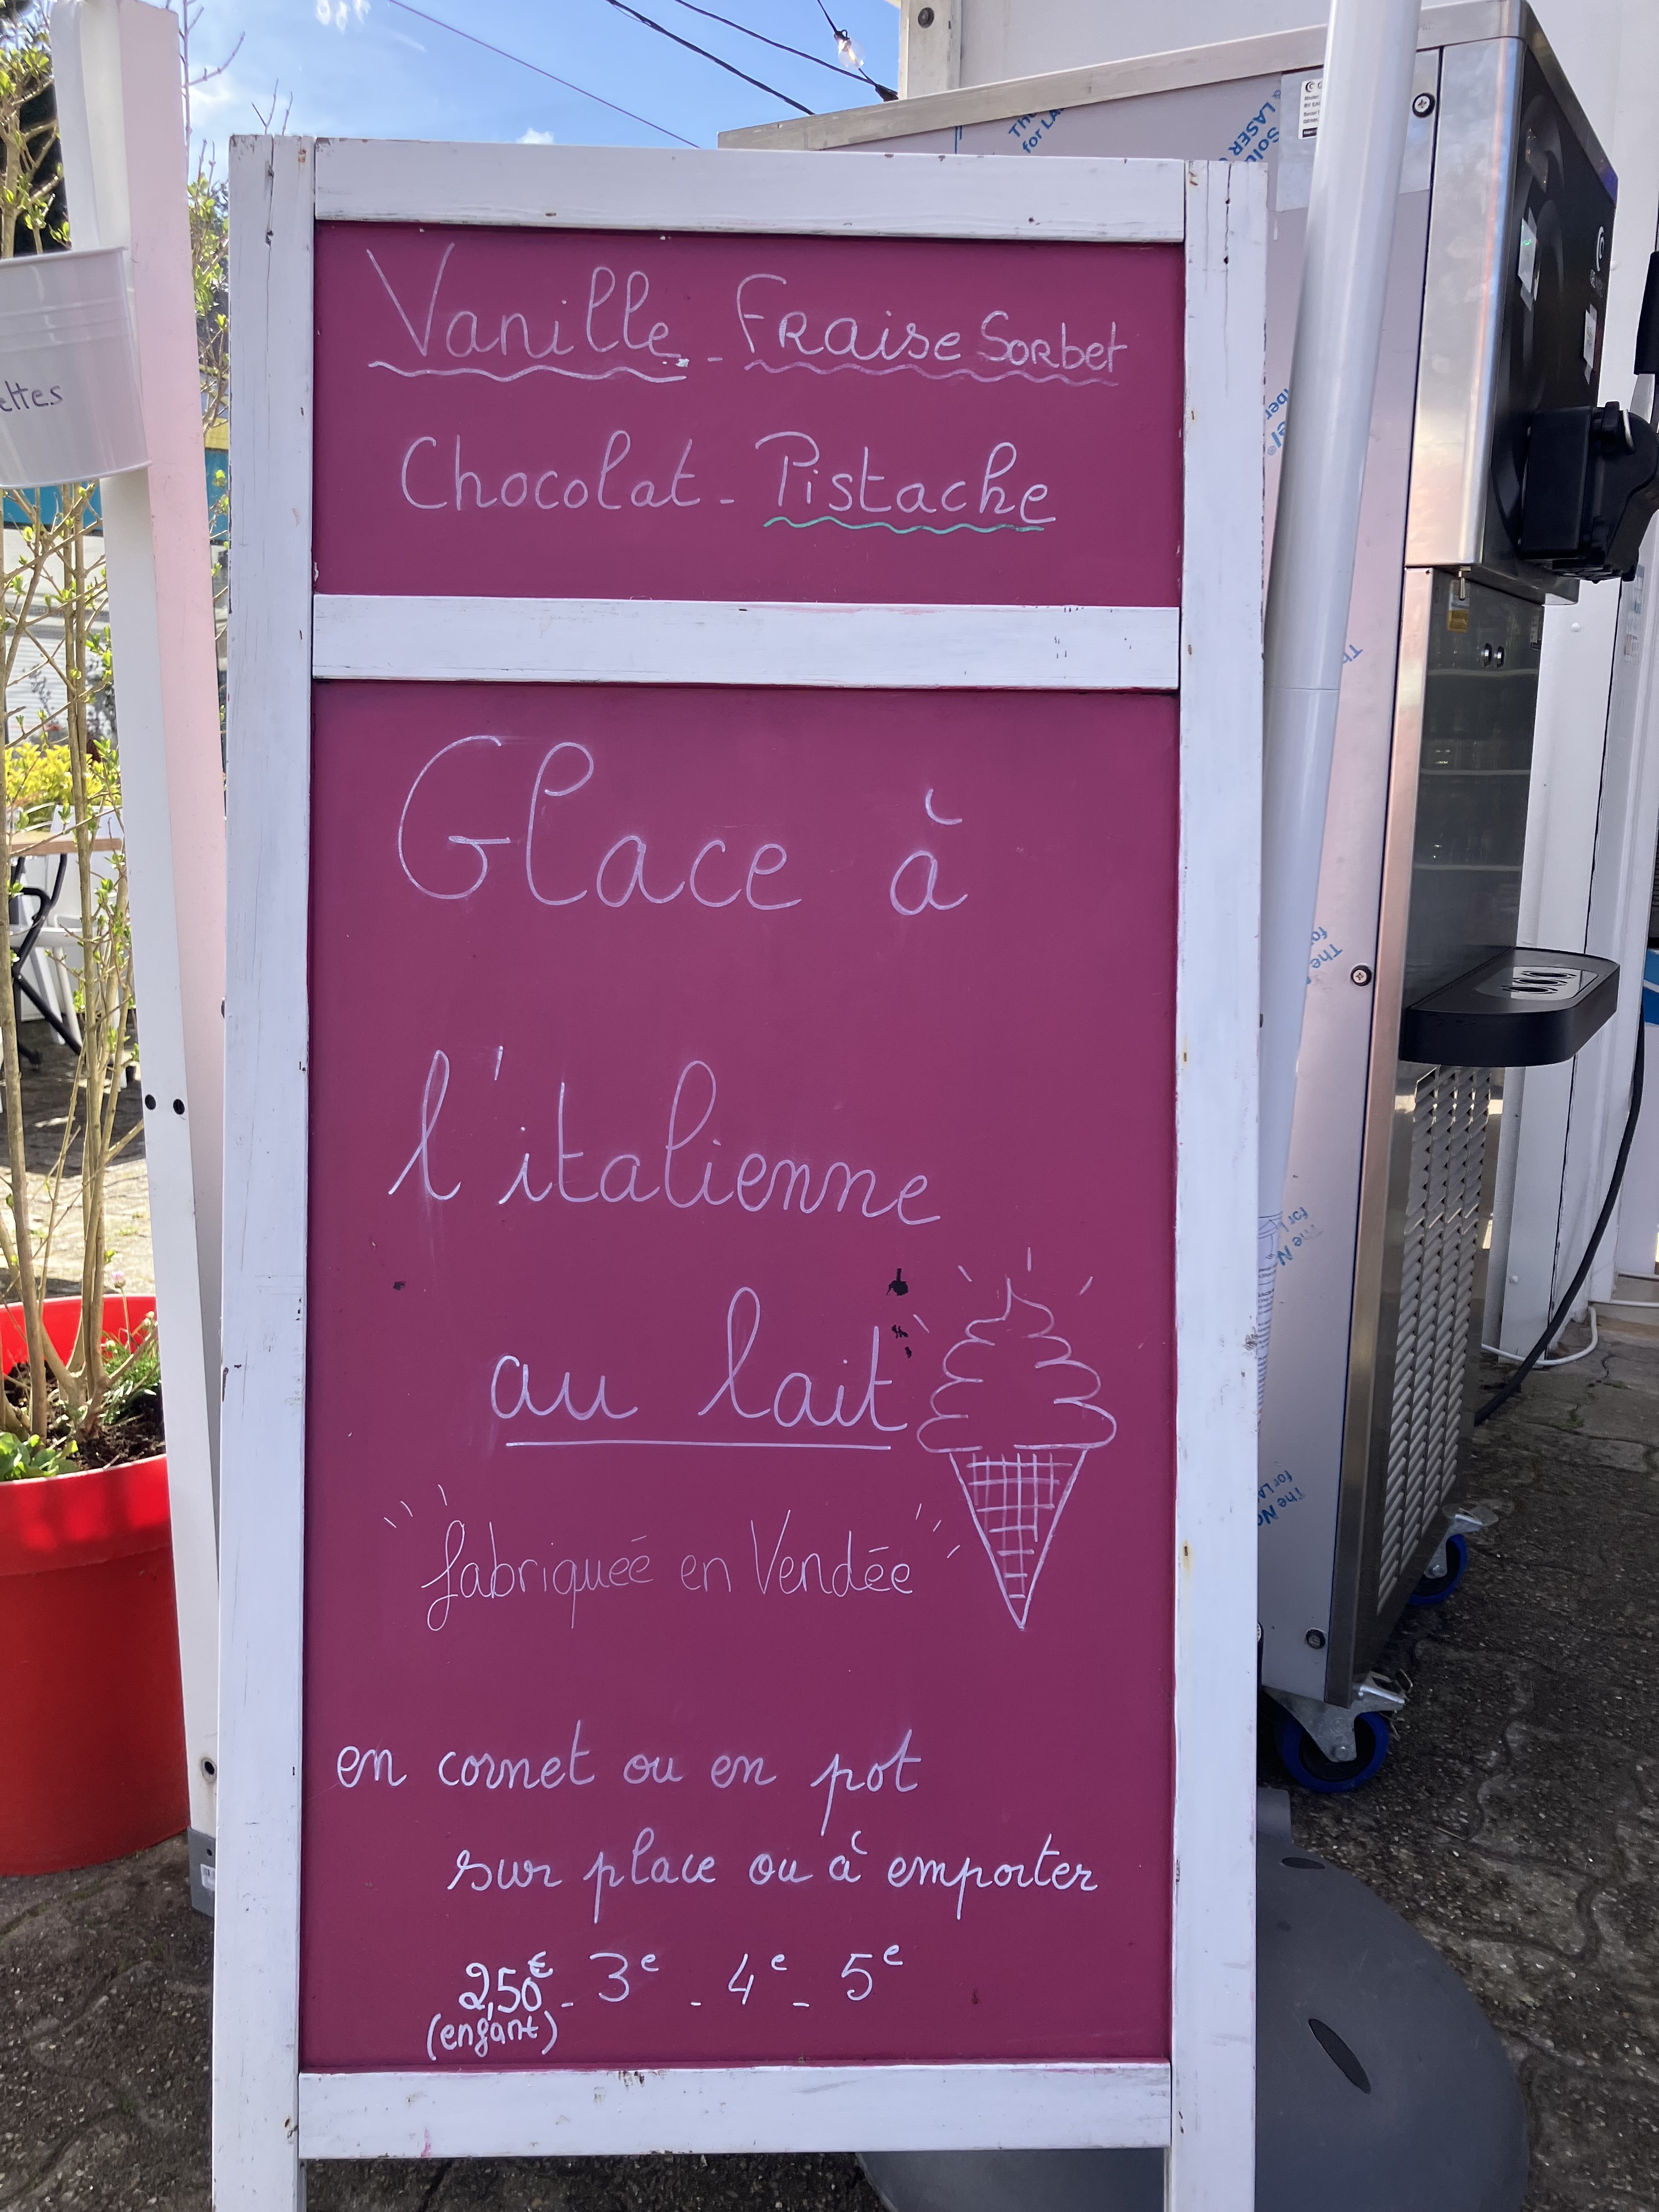 Vanille - Fraise Sorbet
Chocolat - Pistache
Glace à
l'italienne
au lait
fabriqueé en Vendée
en cornet ou en pot
sur place ou à emporter
2,50€ - 3e - 4e - 5e
(enfant)